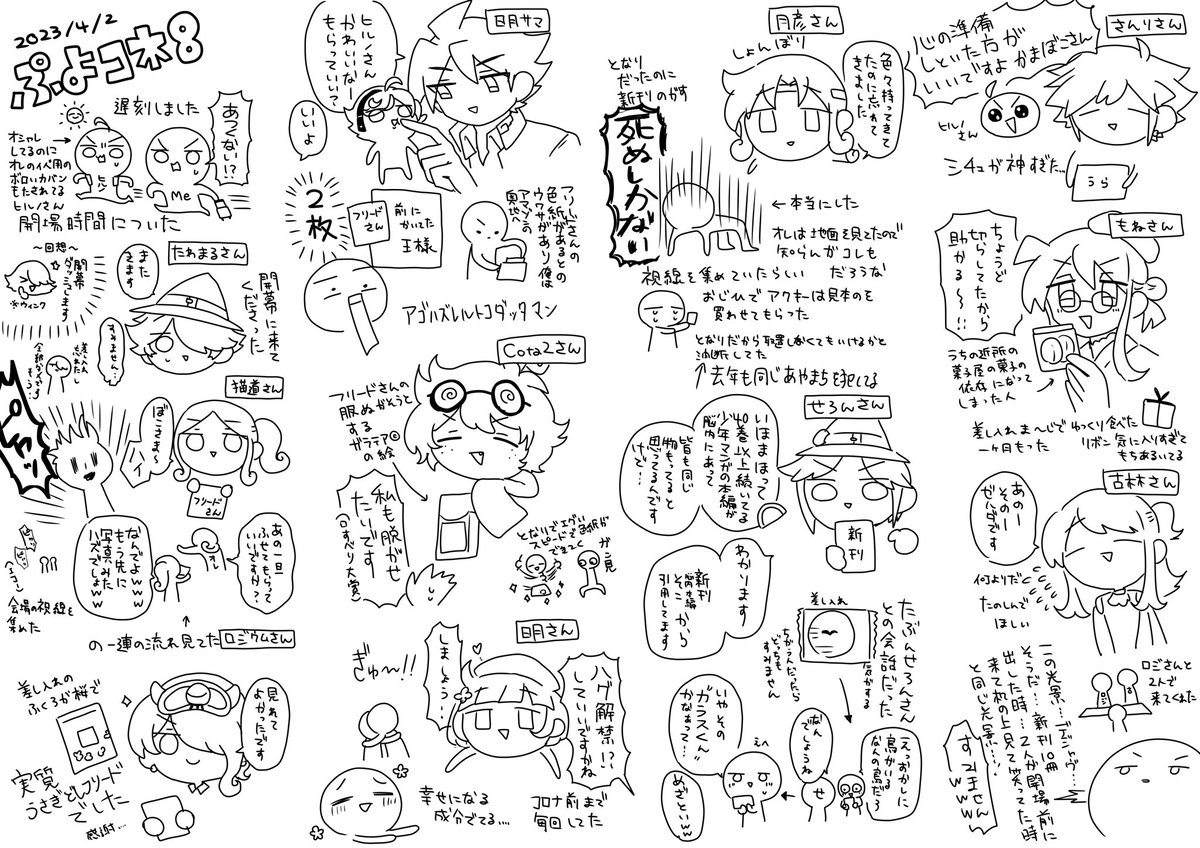 2023/4/2
ぷよコネ8
遅刻しました
あつくない!?
オシャレ
してるのに
オレのイベ用の
ボロいカバン
もたされてる
ヒルノさん
ヒル
Me
開場時間についた
〜回想〜
開幕
ダッシュします
※ウィンク
たれまるさん
また
きます
すみません…
開幕に来て
くださった
差し入れ
忘れたし
猫道さん
ぼこさまー
ハイ
フリード
さん
あの一旦
ふせてもらって
いいですか?
オレ
なんでよww
もう先に
写真みた
ハズでしょww
会場の視線を
集めた
の一連の流れ見てたロジウムさん
見れて
よかったです
差し入れの
ふくろが桜で
実質
うさぎとしフリード
でした
感謝…
日月サマ
ヒルノさん
かわいいなー
もらっていい?
いいよ
2枚
フリード
さん
前に
かいてた
王様
フリードさんの
色紙があるとの
ウワサがあり俺は
アマゾンの
奥地へ
アゴハズレルトコダッタマン
Cotaζさん
フリードさんの
服ぬがそうと
する
ガラテア©
の絵
私も脱がせ
たいです
(口すべり大賞)
となりでエグい
スピードで
色紙が
できてく
ガン見
明さん
ハグ解禁!?
していいですかね
しましょう…
ぎゅ〜!!
コロナ前まで
毎回してた
幸せになる
成分でてる…
月彦さん
しょんぼり
色々持ってきて
たのに忘れて
きました
となり
だったのに
新刊のがす
死ぬしかない
←本当にした
オレは地面を見てたので
知らんがコレも
視線を集めていたらしい
だろうな
おじひでアクキーは見本のを
買わせてもらった
となりだから取置しなくてもいけるかと
油断してた
↑去年も同じあやまちを犯してる
せろんさん
いはまほって
40巻以上続いてる
少年マンガの本編が
脳内にあって
皆も同じ
物もってると
思ってるんです
けど…
新刊
わかります
新刊
第本編
そこから
引用してます
たぶんせろんさん
との会話だった
気がする
ちがう人だったら
どっちも
すみません
差し入れ
えっおかしに
鳥がいる
なんの鳥だろ
なん
でしょうね
せ
いやその
ガラスくん
かなぁって…
えへ
めざといww
さんりさん
心の準備
しといた方が
いいですよ かまぼこさん
ヒルノさん
シチュが神すぎた…
うら
もねさん
ちょうど
切らしてたから
助かる〜!!
うちの近所の
菓子屋の菓子の
依存になって
しまった人
差し入れま〜じでゆっくり食べた
一ヶ月もった
リボン気に入りすぎて
もちあるいてる
古林さん
あのー
そのー
ゼルダです
何よりだ
たのしんで
ほしい
ロジさんと
2人で
来てくれた
ロジ
この光景…デジャヴ…
そうだ…新刊10冊
出した時…2人が開場前に
来て机の上見て笑ってた時
と同じ光景…!
すみません
www